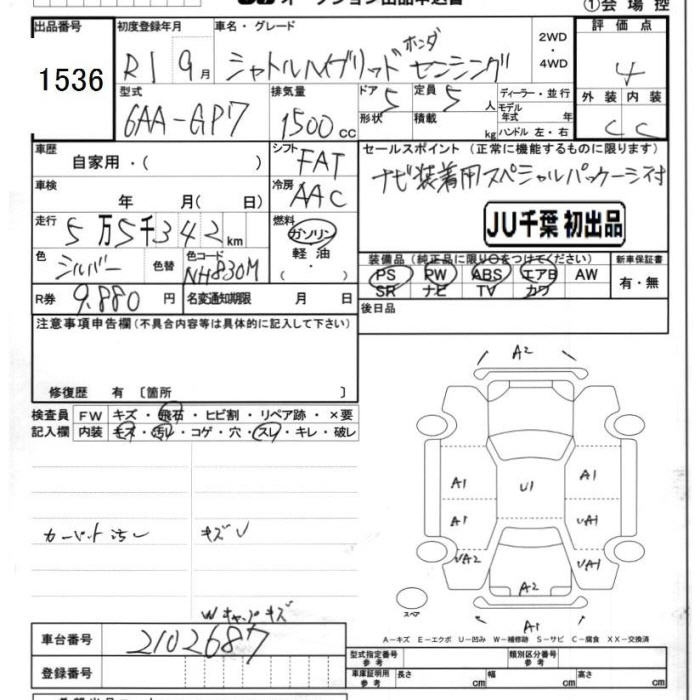 オークション出品申込書
①会場控
出品番号 初度登録年月 車名・グレード 評価点
1536 R1 9月 シャトルハイブリッド ホンダ センシング 2WD・4WD 4
型式 排気量 ドア 定員 ディーラー・並行 外装 内装
6AA-GP7 1500cc 5 5人 モデル年式 年 C C
形状 積載 kg ハンドル 左・右
車歴 シフト セールスポイント (正常に機能するものに限ります)
自家用・( ) FAT ナビ装着用スペシャルパッケージ付
車検 冷房
年 月( 日) AAC
JU千葉 初出品
走行 燃料
5万5千342km ガソリン
軽油
・( )
色 色替 色コード 装備品(純正品に限り○をつけてください) 新車保証書
シルバー NH830M PS PW ABS エアB AW 有・無
SR ナビ TV カワ
R券 9,880円 名変通知期限 月 日 後日品
注意事項申告欄(不具合内容等は具体的に記入して下さい)
修復歴 有 〔箇所 〕
検査員 FW キズ・飛石・ヒビ割・リペア跡・×要
記入欄 内装 キズ・汚れ・コゲ・穴・スレ・キレ・破レ
カーペット汚レ キズU
A2
A1 U1 A1
A1 UA1
UA2 UA1
A2
スペア
A1
Wキャップキズ
A－キズ E－エクボ U－凹み W－補修跡 S－サビ C－腐食 XX－交換済
車台番号 2102687
型式指定番号 参考 類別区分番号 参考
登録番号 車庫証明用 参考 長さ cm 幅 cm 高さ cm